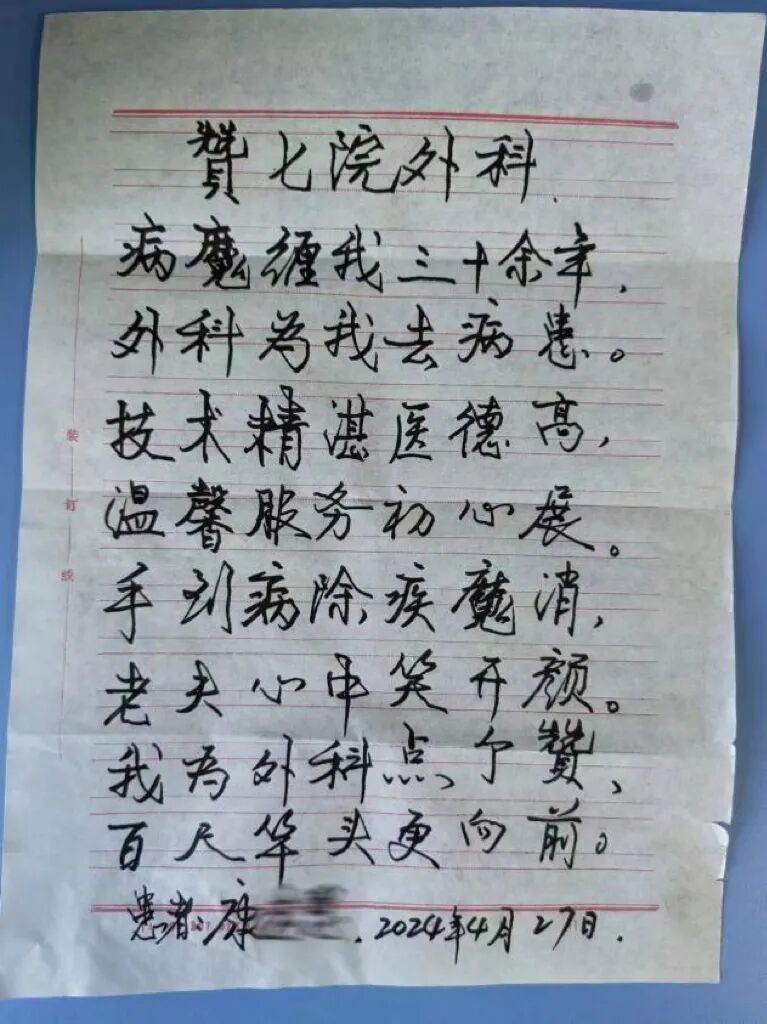 赞七院外科.
病魔缠我三十余年,
外科为我去病患。
技术精湛医德高,
温馨服务初心展。
手到病除疾魔消,
老夫心中笑开颜。
我为外科点个赞、
百尺竿头更向前。
患者:康 . 2024年4月27日.
装订线